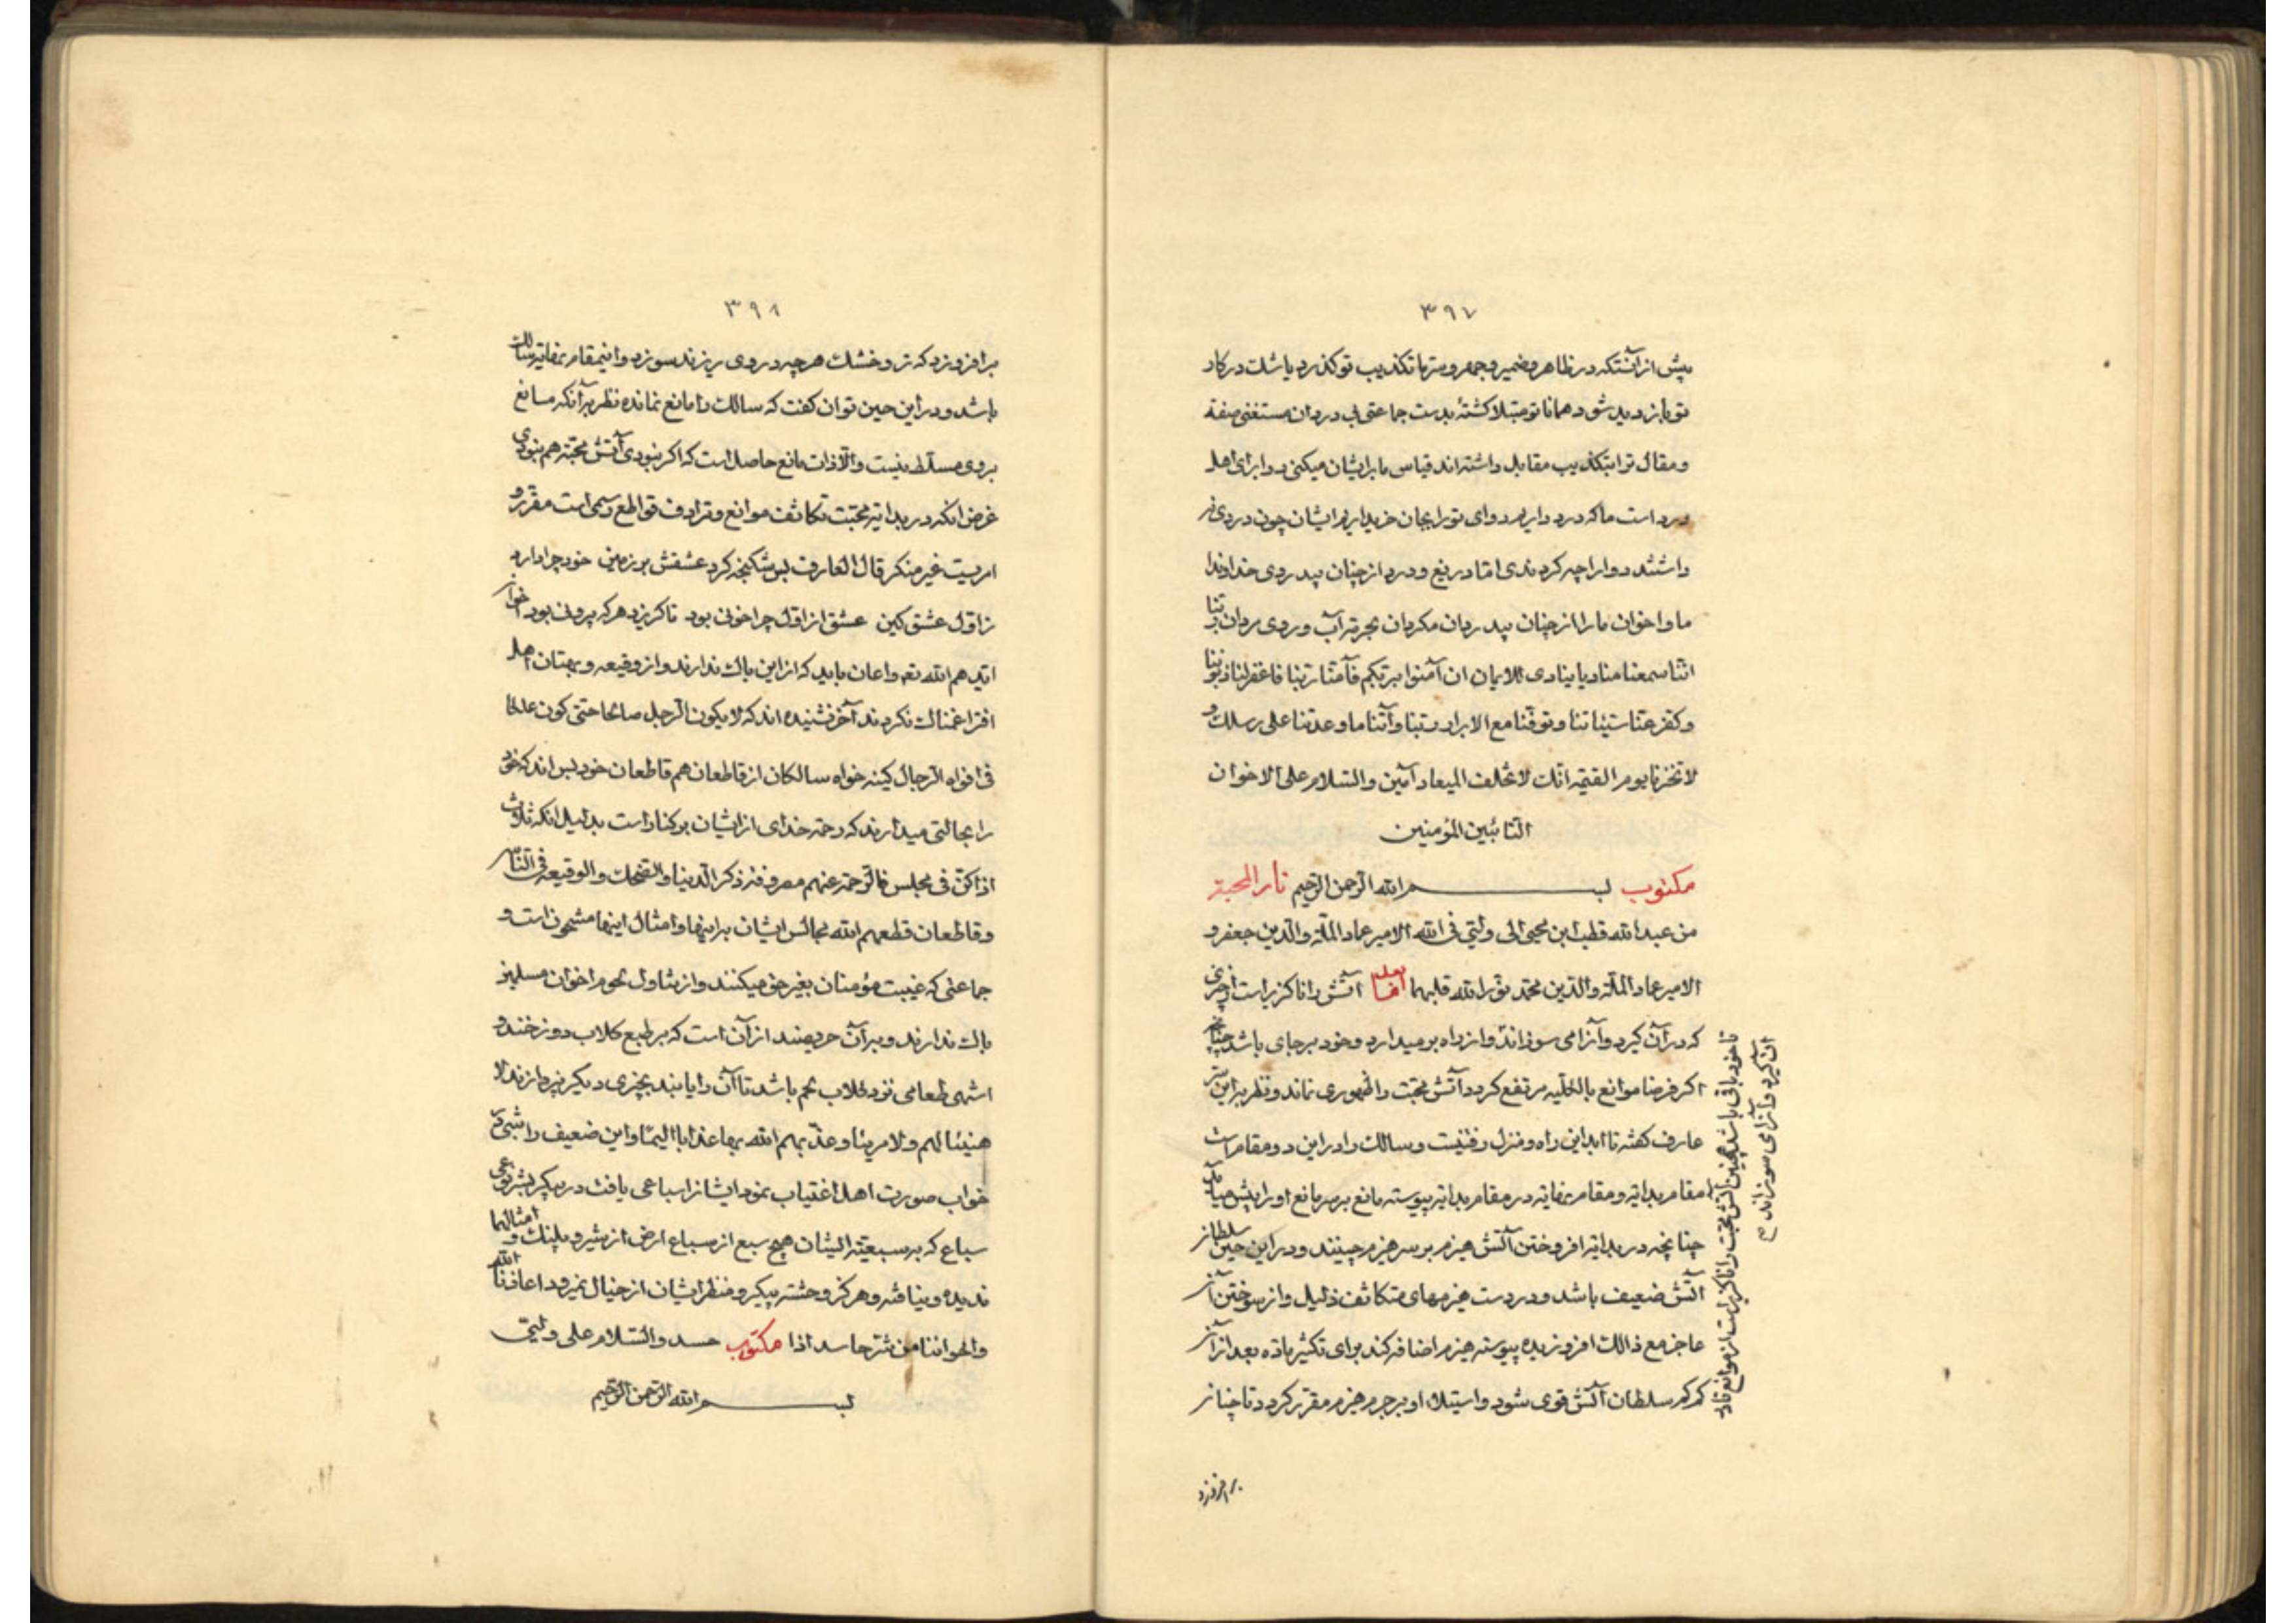 ۳۹۷
پیش از آنستکه در ظاهر و ضمیر و جهر و سر ما تکذیب تو گذرد یا شک در کار
تو بازدید شود همانا تو مبتلا کشتهٔ بدست جماعتی بی دردان مستغنی صفة
و مقال ترا بتکذیب مقابل داشته‌اند قیاس ما برایشان میکنی دوا برای اهل
درد است ما که درد داریم دوای تو را بجان خریداریم ایشان چون دردی نه
داشتند دوا را چه کردندی اما دریغ و درد از چنان بیدردی خداوندا
ما و اخوان ما را از چنان بیدردان مکردان بحرمة آب و روی مردان ربنا
اننا سمعنا منادیا ینادی للایمان ان آمنوا بربکم فآمنا ربنا فاغفر لنا ذنوبنا
و کفر عنا سیئاتنا و توفنا مع الابرار ربنا و آتنا ما وعدتنا علی رسلک و
لا تخزنا یوم القیمة انک لا تخلف المیعاد آمین والسلام علی الاخوان
التائبین المؤمنین
مکتوب بسم الله الرحمن الرحیم نار المحبة
من عبد الله قطب ابن محیی الی ولیی فی الله الامیر عماد الملة والدین جعفر و
الامیر عماد الملة والدین محمد نور الله قلبهما اما بعد آتش را ناکزیر است از چیزی
که در آن کیرد و آنرا می سوزاند و از راه بر میدارد و خود بر جای باشد چنانچه
اکر فرضا موانع بالکلیه مرتفع کردد آتش محبت را ظهوری نماند و نظر بر این سر
عارف کفته تا ابد این راه و منزل رفتنیست و سالک را در این دو مقام است
مقام بدایة و مقام نهایة در مقام بدایة پیوسته مانع بر سر مانع او را پیش میاید
چنانچه در بدایة افروختن آتش هیزم بر سر هیزم چینند و در این حین سلطان
آتش ضعیف باشد و در دست هیزمهای متکاثف ذلیل و از سوختن آن
عاجز مع ذالک افروزنده پیوسته هیزم اضافه کند برای تکثیر ماده بعد از آن
کم کم سلطان آتش قوی شود و استیلاء او بر جرم هیزم مقرر کردد تا چنان
برافروزد
تا خود باقی باشد همچنین آتش محبت را ناکزیر است از موانع تا در
آن کیرد و آنرا می سوزاند صح
۳۹۸
برافروزد که تر و خشک هرچه در وی ریزند سوزد و اینمقام نهایة سالک
باشد و در این حین توان کفت که سالک را مانع نمانده نظر بر آنکه مانع
بر وی مسلط نیست و الا ذات مانع حاصل است که اکر نبودی آتش محبة هم نبودی
غرض آنکه در بدایة محبت تکاثف موانع و ترادف قواطع رسمی است مقرر و
امریست غیر منکر قال العارف بس شکنجه کرد عشقش بر زمین خود چرا دارد
ز اول عشق کین عشق از اول چرا خونی بود تا کریزد هرکه بیرونی بود اخوان
ایدهم الله تعه و اعان باید که از این باک ندارند و از وقیعه و بهتان اهل
افترا غمناک نکردند آخر نشنیده‌اند که لا یکون الرجل صالحا حتی کون عالما
فی افواه الرجال کینه خواه سالکان از قاطعان هم قاطعان خود بس‌اند که خود
را بحالتی میدارند که رحمة خدای از ایشان برکنار است بدلیل انکه ثلاث
اذا کن فی مجلس فالرحمة عنهم مصروفة ذکر الدنیا والضحک والوقیعة فی الناس
و قاطعان قطعهم الله مجالس ایشان بر اینها و امثال اینها مشحون است و
جماعتی که غیبت مؤمنان بغیر حق میکنند و از تناول لحوم اخوان مسلمین
باک ندارند و بر آن حریصند از آن است که بر طبع کلاب دوزخند و
اشهی طعامی نزد کلاب لحم باشد تا آن را یابند بچیزی دیکر نپردازند لا
هنیئا لهم و لا مریئا و عذبهم الله بها عذابا الیما و این ضعیف را شبی در
خواب صورت اهل اغتیاب نمود ایشانرا سباعی یافت در پیکر بشر نوعی
سباع که بر سبعیة ایشان هیچ سبع از سباع ارض از شیر و پلنک و امثالهما
ندیده و نیافته و هرکز وحشت پیکر و منظر ایشان از خیال نمیرود اعاذنا الله
و اخواننا من شر حاسد اذا مکتوب حسد والسلام علی ولیی
بسم الله الرحمن الرحیم